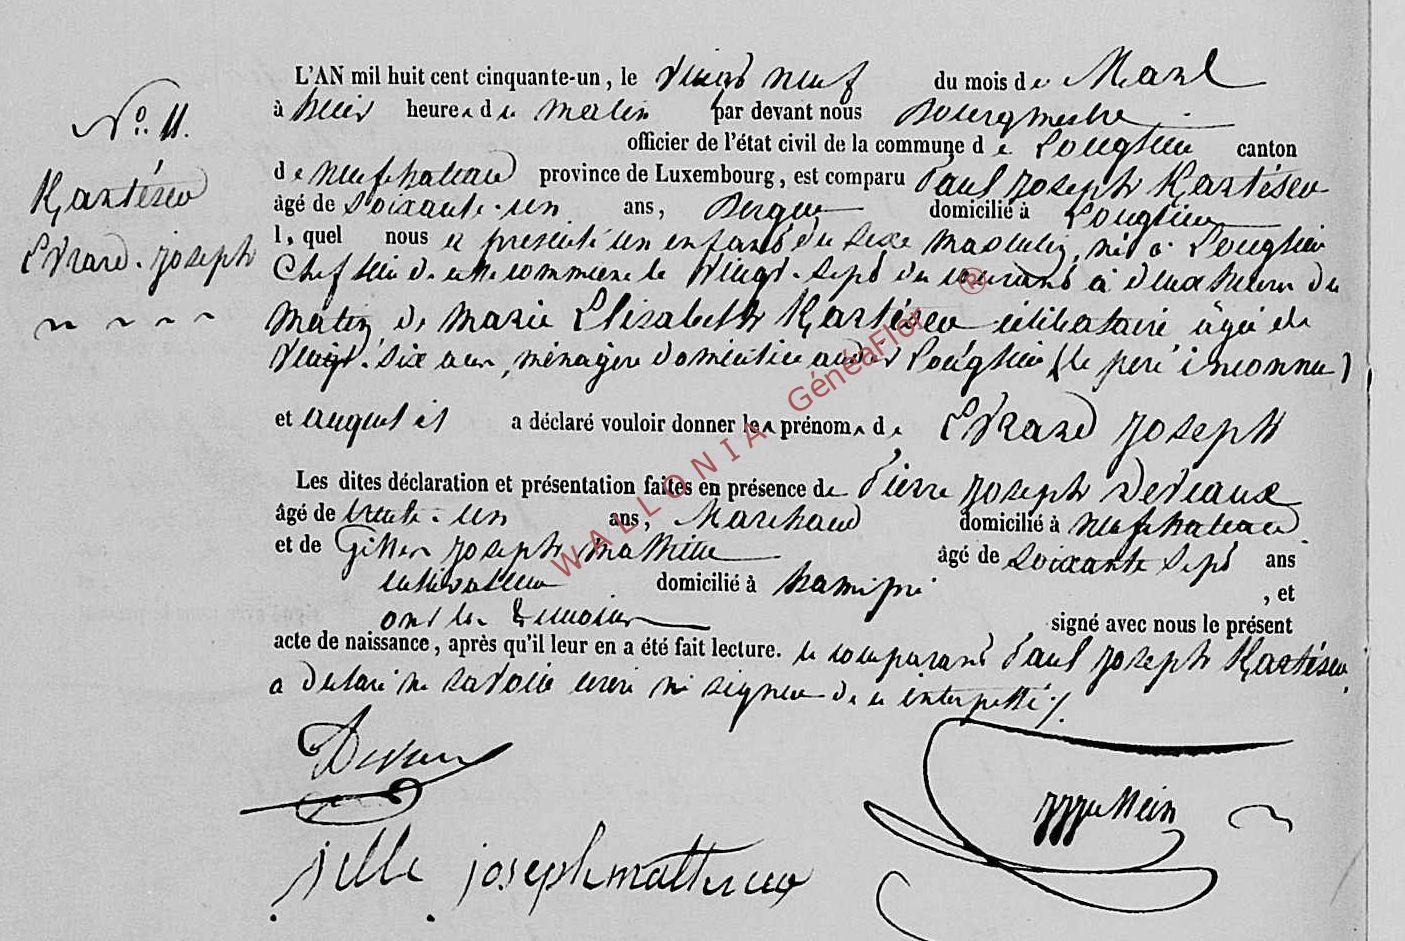 No. 11.
Kartéseu
Evrard. joseph
L'AN mil huit cent cinquante-un, le vingt neuf du mois de Mars
à huit heures du matin par devant nous Bourgmestre
officier de l'état civil de la commune de Longlier canton
de neufchateau province de Luxembourg, est comparu Paul joseph Kartéseu
âgé de soixante-un ans, Berger domicilié à Longlier
l, quel nous a présenté un enfant du sexe masculin, né à Longlier
Chef lieu de cette commune le vingt-sept du courant à deux heures du
matin de marie Elisabeth Kartéseu célibataire âgée de
vingt-six ans, ménagère domiciliée audit Longlier (le père inconnu)
et auquel il a déclaré vouloir donner les prénoms de Evrard joseph
Les dites déclaration et présentation faites en présence de Pierre joseph Deveaux
âgé de trente-un ans, Marchand domicilié à neufchateau
et de Gilles joseph mathieu âgé de soixante sept ans
cultivateur domicilié à hamipré , et
ont les témoins signé avec nous le présent
acte de naissance, après qu'il leur en a été fait lecture. le comparant Paul joseph Kartéseu
a déclaré ne savoir écrire ni signer de ce interpellé ./.
jille joseph mathieu
WALLONIA GénéaFlor ®